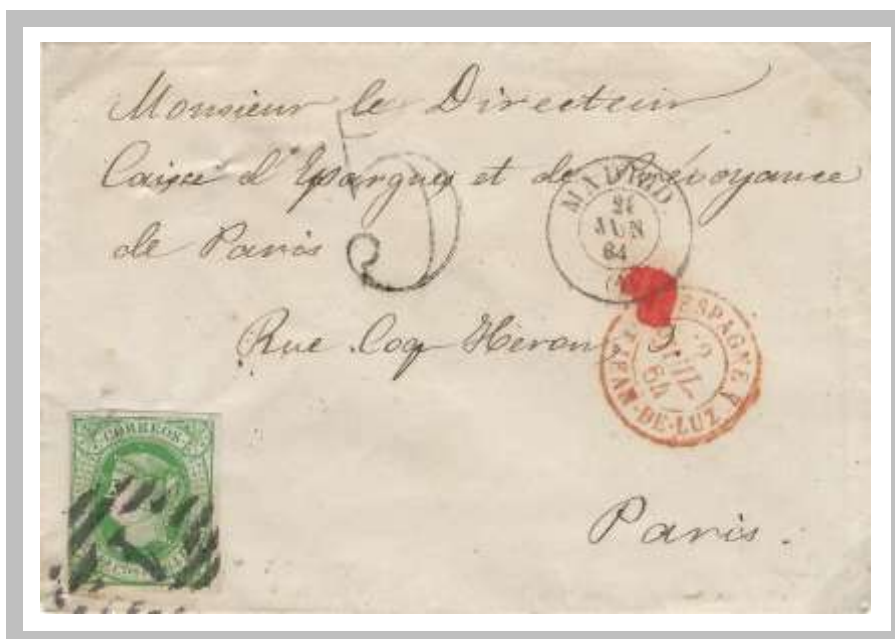 Monsieur le Directeur
Caisse d'Epargne et de Prévoyance
de Paris
5
MADRID
JUN
64
Rue Coq Héron, 3
ESPAGNE
2
JUIL
64
ST JEAN-DE-LUZ
CORREOS
Paris.